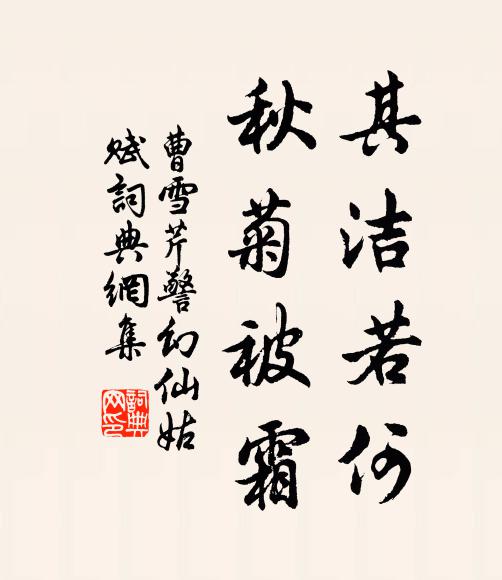 其洁若何
秋菊被霜
曹雪芹警幻仙姑
赋词典網集
詞典
网印